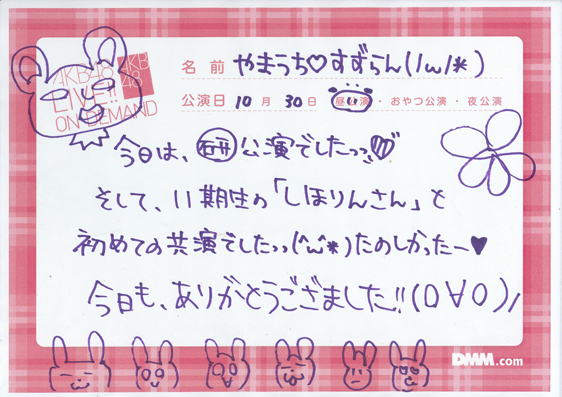 AKB48
LIVE!!
ON DEMAND
AKB
48
名前 やまうち♡すずらん(ノω\*)
公演日 10月30日 昼公演・おやつ公演・夜公演
今日は、㊙公演でしたっっ♡
そして、11期生の「しほりんさん」と
初めての共演でしたっっ(^ω^*)たのしかったー♥
今日も、ありがとうござました!!(０∀０)ノ
DMM.com